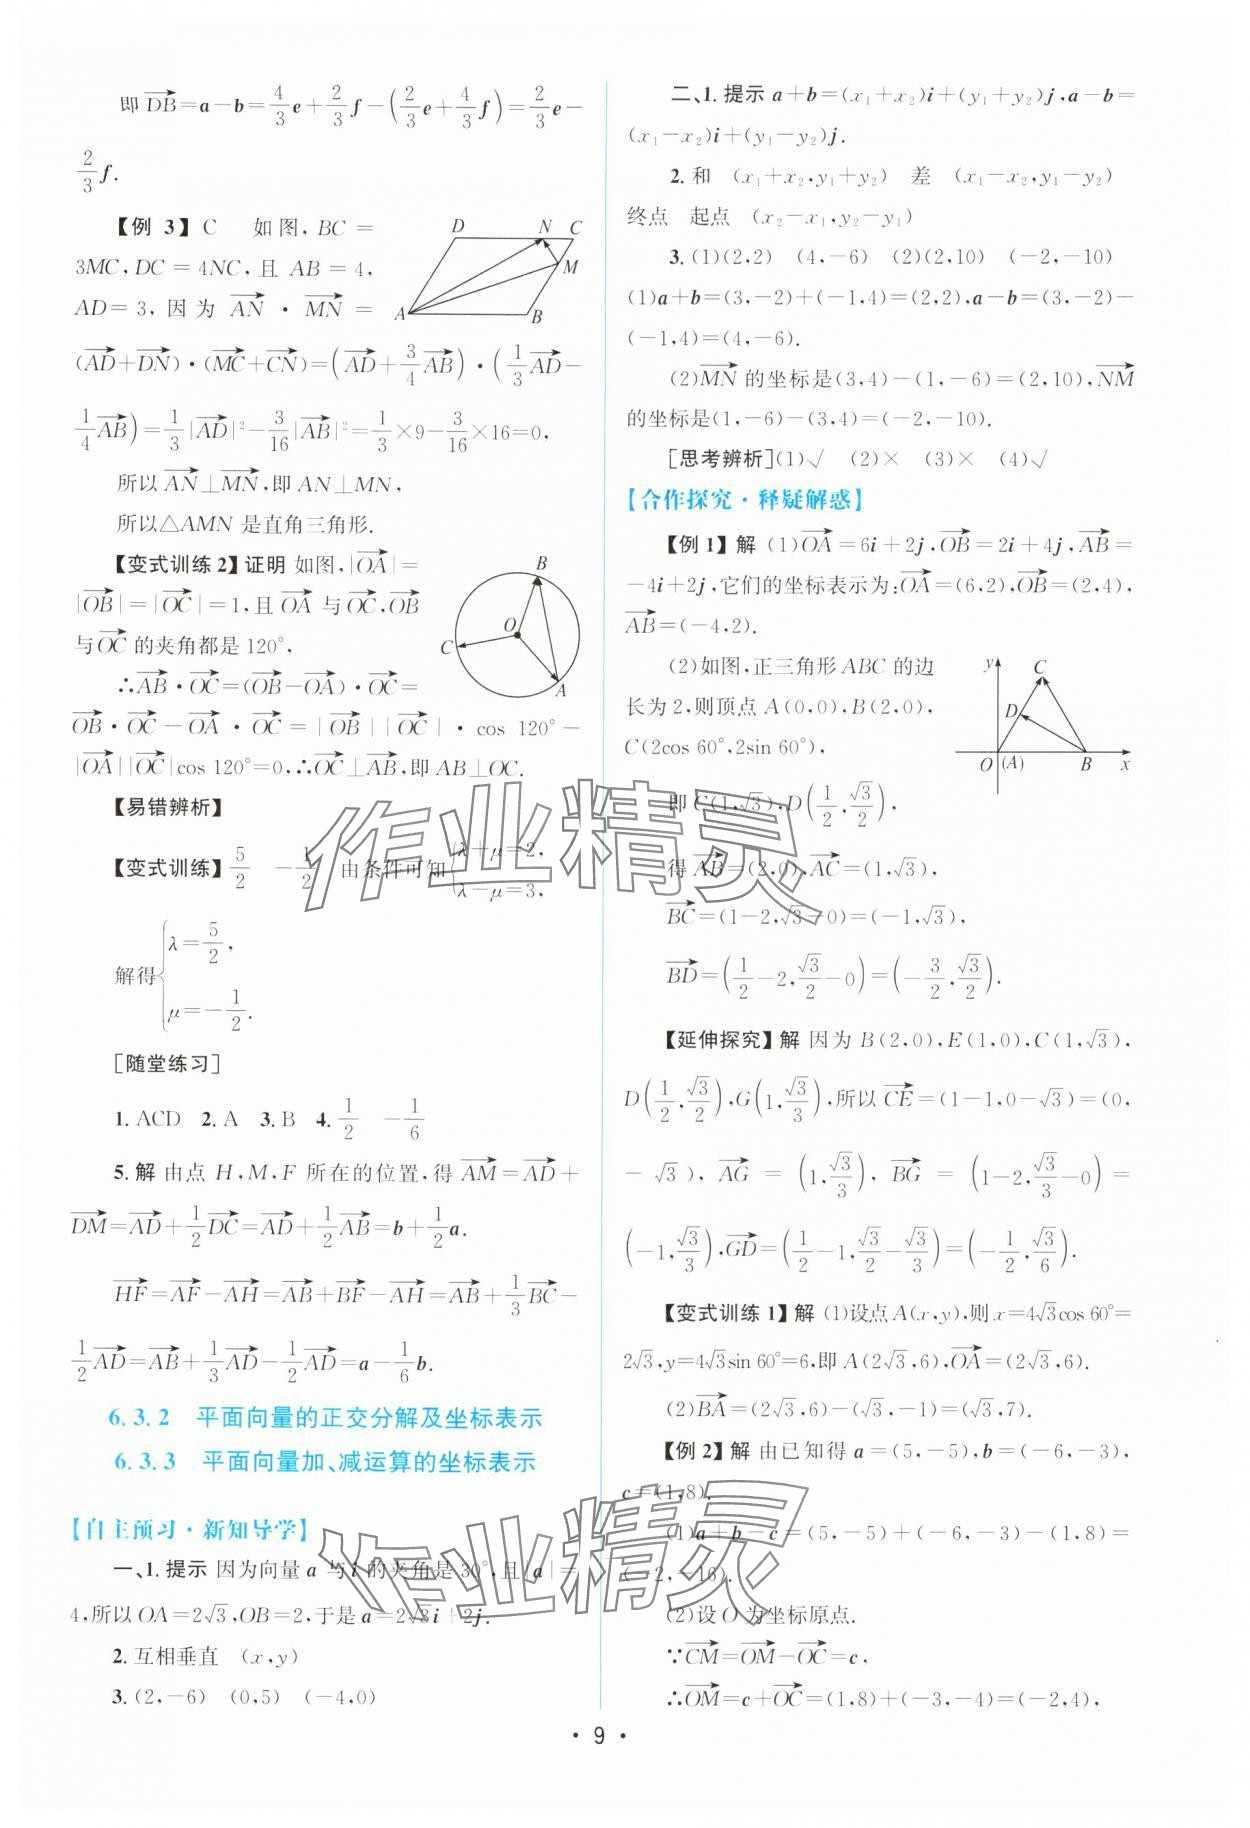 即DB=a-b=4/3e+2/3f-(2/3e+4/3f)=2/3e-
2/3f.
【例 3】C 如图,BC=
3MC,DC=4NC,且 AB=4,
AD=3,因为 AN·MN=
(AD+DN)·(MC+CN)=(AD+3/4AB)·(1/3AD-
1/4AB)=1/3|AD|²-3/16|AB|²=1/3×9-3/16×16=0,
所以AN⊥MN,即 AN⊥MN,
所以△AMN 是直角三角形.
D N C
M
A B
【变式训练2】证明 如图,|OA|=
|OB|=|OC|=1,且OA与OC,OB
与OC的夹角都是120°,
∴AB·OC=(OB-OA)·OC=
OB·OC-OA·OC=|OB||OC|·cos 120°-
|OA||OC|cos 120°=0,∴OC⊥AB,即AB⊥OC.
B
O
C
A
【易错辨析】
【变式训练】5/2 -1/2 由条件可知{λ+μ=2,
λ-μ=3,
解得{λ=5/2,
μ=-1/2.
[随堂练习]
1.ACD 2.A 3.B 4.1/2 -1/6
5.解 由点 H,M,F 所在的位置,得AM=AD+
DM=AD+1/2DC=AD+1/2AB=b+1/2a.
HF=AF-AH=AB+BF-AH=AB+1/3BC-
1/2AD=AB+1/3AD-1/2AD=a-1/6b.
6.3.2 平面向量的正交分解及坐标表示
6.3.3 平面向量加、减运算的坐标表示
【自主预习·新知导学】
一、1.提示 因为向量 a 与 i 的夹角是30°,且|a|=
4,所以OA=2√3,OB=2,于是a=2√3i+2j.
2.互相垂直 (x,y)
3.(2,-6) (0,5) (-4,0)
二、1.提示 a+b=(x₁+x₂)i+(y₁+y₂)j,a-b=
(x₁-x₂)i+(y₁-y₂)j.
2.和 (x₁+x₂,y₁+y₂) 差 (x₁-x₂,y₁-y₂)
终点 起点 (x₂-x₁,y₂-y₁)
3.(1)(2,2) (4,-6) (2)(2,10) (-2,-10)
(1)a+b=(3,-2)+(-1,4)=(2,2),a-b=(3,-2)-
(-1,4)=(4,-6).
(2)MN的坐标是(3,4)-(1,-6)=(2,10),NM
的坐标是(1,-6)-(3,4)=(-2,-10).
[思考辨析](1)√ (2)× (3)× (4)√
【合作探究·释疑解惑】
【例1】解 (1)OA=6i+2j,OB=2i+4j,AB=
-4i+2j,它们的坐标表示为:OA=(6,2),OB=(2,4),
AB=(-4,2).
(2)如图,正三角形ABC的边
长为2,则顶点A(0,0),B(2,0),
C(2cos 60°,2sin 60°),
y C
D
O (A) B x
即C(1,√3),D(1/2,√3/2),
得AB=(2,0),AC=(1,√3),
BC=(1-2,√3-0)=(-1,√3),
BD=(1/2-2,√3/2-0)=(-3/2,√3/2).
【延伸探究】解 因为 B(2,0),E(1,0),C(1,√3),
D(1/2,√3/2),G(1,√3/3),所以CE=(1-1,0-√3)=(0,
-√3),AG=(1,√3/3),BG=(1-2,√3/3-0)=
(-1,√3/3),GD=(1/2-1,√3/2-√3/3)=(-1/2,√3/6).
【变式训练1】解 (1)设点A(x,y),则x=4√3cos 60°=
2√3,y=4√3sin 60°=6,即A(2√3,6),OA=(2√3,6).
(2)BA=(2√3,6)-(√3,-1)=(√3,7).
【例2】解 由已知得a=(5,-5),b=(-6,-3),
c=(1,8).
(1)a+b-c=(5,-5)+(-6,-3)-(1,8)=
(-2,-16).
(2)设O为坐标原点.
∵CM=OM-OC=c,
∴OM=c+OC=(1,8)+(-3,-4)=(-2,4),
·9·
作业精灵
作业精灵